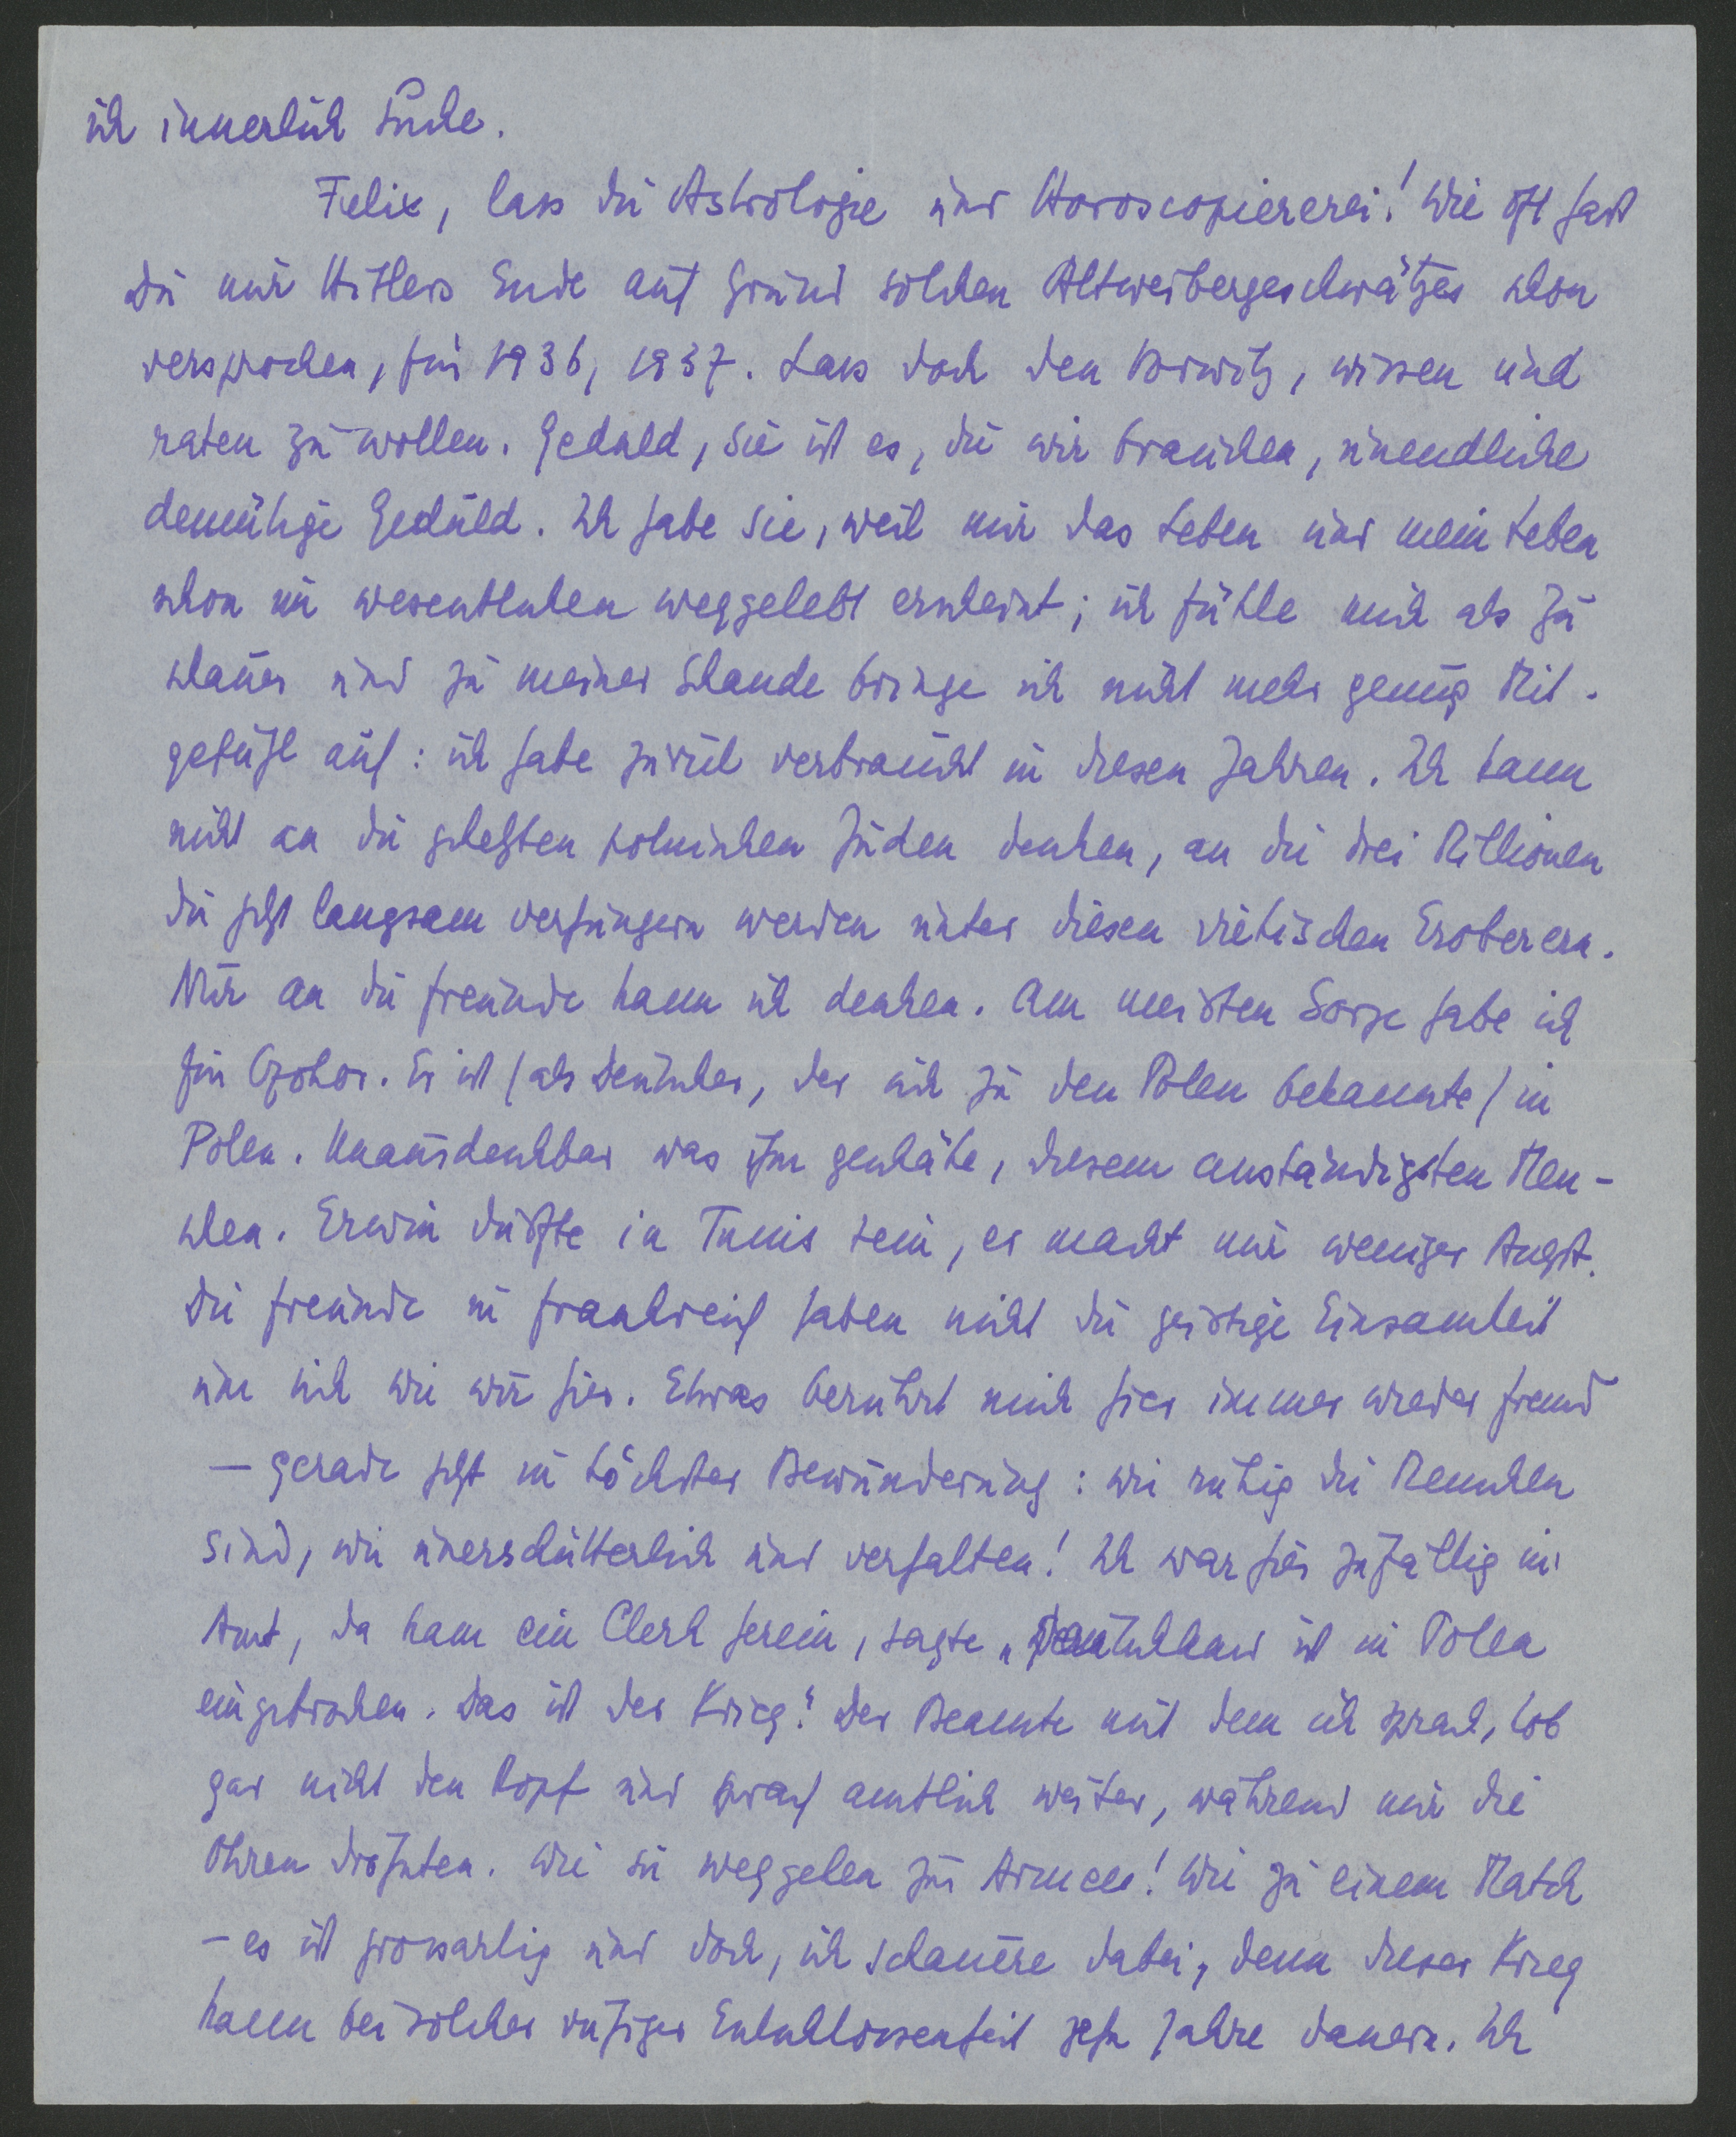 ich innerlich suche.
Felix, lass die Astrologie und Horoscopiererei! Wie oft hast
Du mir Hitlers Ende auf Grund solchen Altweibergeschwätzes schon
versprochen, für 1936, 1937. Lass doch den Vorwitz, wissen und
raten zu wollen. Geduld, sie ist es, die wir brauchen, unendliche
demütige Geduld. Ich habe sie, weil mir das Leben und mein Leben
schon im wesentlichen weggelebt erscheint; ich fühle mich als Zu
schauer und zu meiner Schande bringe ich nicht mehr genug Mit-
gefühl auf: ich habe zuviel verbraucht in diesen Jahren. Ich kann
nicht an die gehetzten polnischen Juden denken, an die drei Millionen
die jetzt langsam verhungern werden unter diesen viehischen Eroberern.
Nur an die Freunde kann ich denken. Am meisten Sorge habe ich
für Czokor. Er ist (als Deutscher, der sich zu den Polen bekannte) in
Polen. Unausdenkbar was ihm geschähe, diesem anständigsten Men-
schen. Erwin dürfte in Tunis sein, er macht mir weniger Angst.
Die Freunde in Frankreich haben nicht die geistige Einsamkeit
um sich wie wir hier. Etwas berührt mich hier immer wieder fremd
– gerade jetzt in höchster Bewunderung: wie ruhig die Menschen
sind, wie unerschütterlich und verhalten! Ich war hier zufällig im
Amt, da kam ein Clerk herein, sagte „Deutschland ist in Polen
eingebrochen. Das ist der Krieg". Der Beamte mit dem ich sprach, hob
gar nicht den Kopf und sprach amtlich weiter, während mir die
Ohren dröhnten. Wie sie weggehen zur Armee! Wie zu einem Match
– es ist grossartig und doch, ich schauere dabei, denn dieser Krieg
kann bei solcher ruhiger Entschlossenheit zehn Jahre dauern. Ich